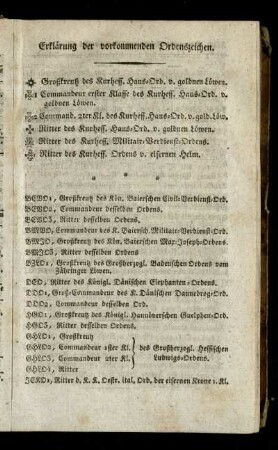 Erklärung der vorkommenden Ordenszeichen.
Großkreutz des Kurhess. Haus-Ord. v. goldnen Löwen.
Commandeur erster Klasse des Kurhess. Haus-Ord. v.
goldnen Löwen.
Command. 2ter Kl. des Kurhess. Haus-Ord. v. gold. Löw.
Ritter des Kurhess. Haus-Ord. v. goldnen Löwen.
Ritter des Kurhess. Militair-Verdienst-Ordens.
Ritter des Kurhess. Ordens v. eisernen Helm.
* * *
Großkreutz des Kön. Baierschen Civil-Verdienst-Ord.
Commandeur desselben Ordens.
Ritter desselben Ordens.
Commandeur des K. Baiersch. Militair-Verdienst-Ord.
Großkreutz des Kön. Baierschen Max-Joseph-Ordens.
Ritter desselben Ordens.
Großkreutz des Großherzogl. Badenschen Ordens vom
Zähringer Löwen.
Ritter des Königl. Dänischen Elephanten-Ordens.
Groß-Commandeur des K. Dänischen Dannebrog-Ord.
Commandeur desselben Ordens.
HGO1, Großkreutz des Königl. Hannöverschen Guelphen-Ord.
HGO3, Ritter desselben Ordens.
GHLO1, Großkreutz
GHLO2, Commandeur 1ster Kl.
GHLO3, Commandeur 2ter Kl.
GHLO4, Ritter
des Großherzogl. Hessischen
Ludwigs-Ordens.
Ritter d. K. K. Oestr. ital. Ord. der eisernen Krone 1. Kl.